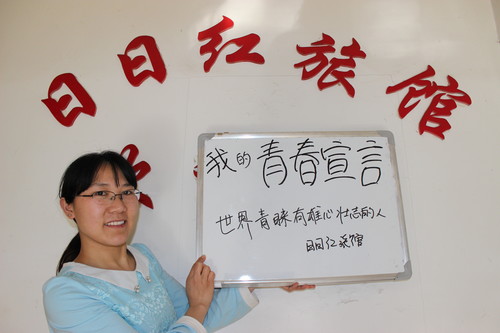 日日红旅馆
我的青春宣言
世界青睐有雄心壮志的人
日日红旅馆